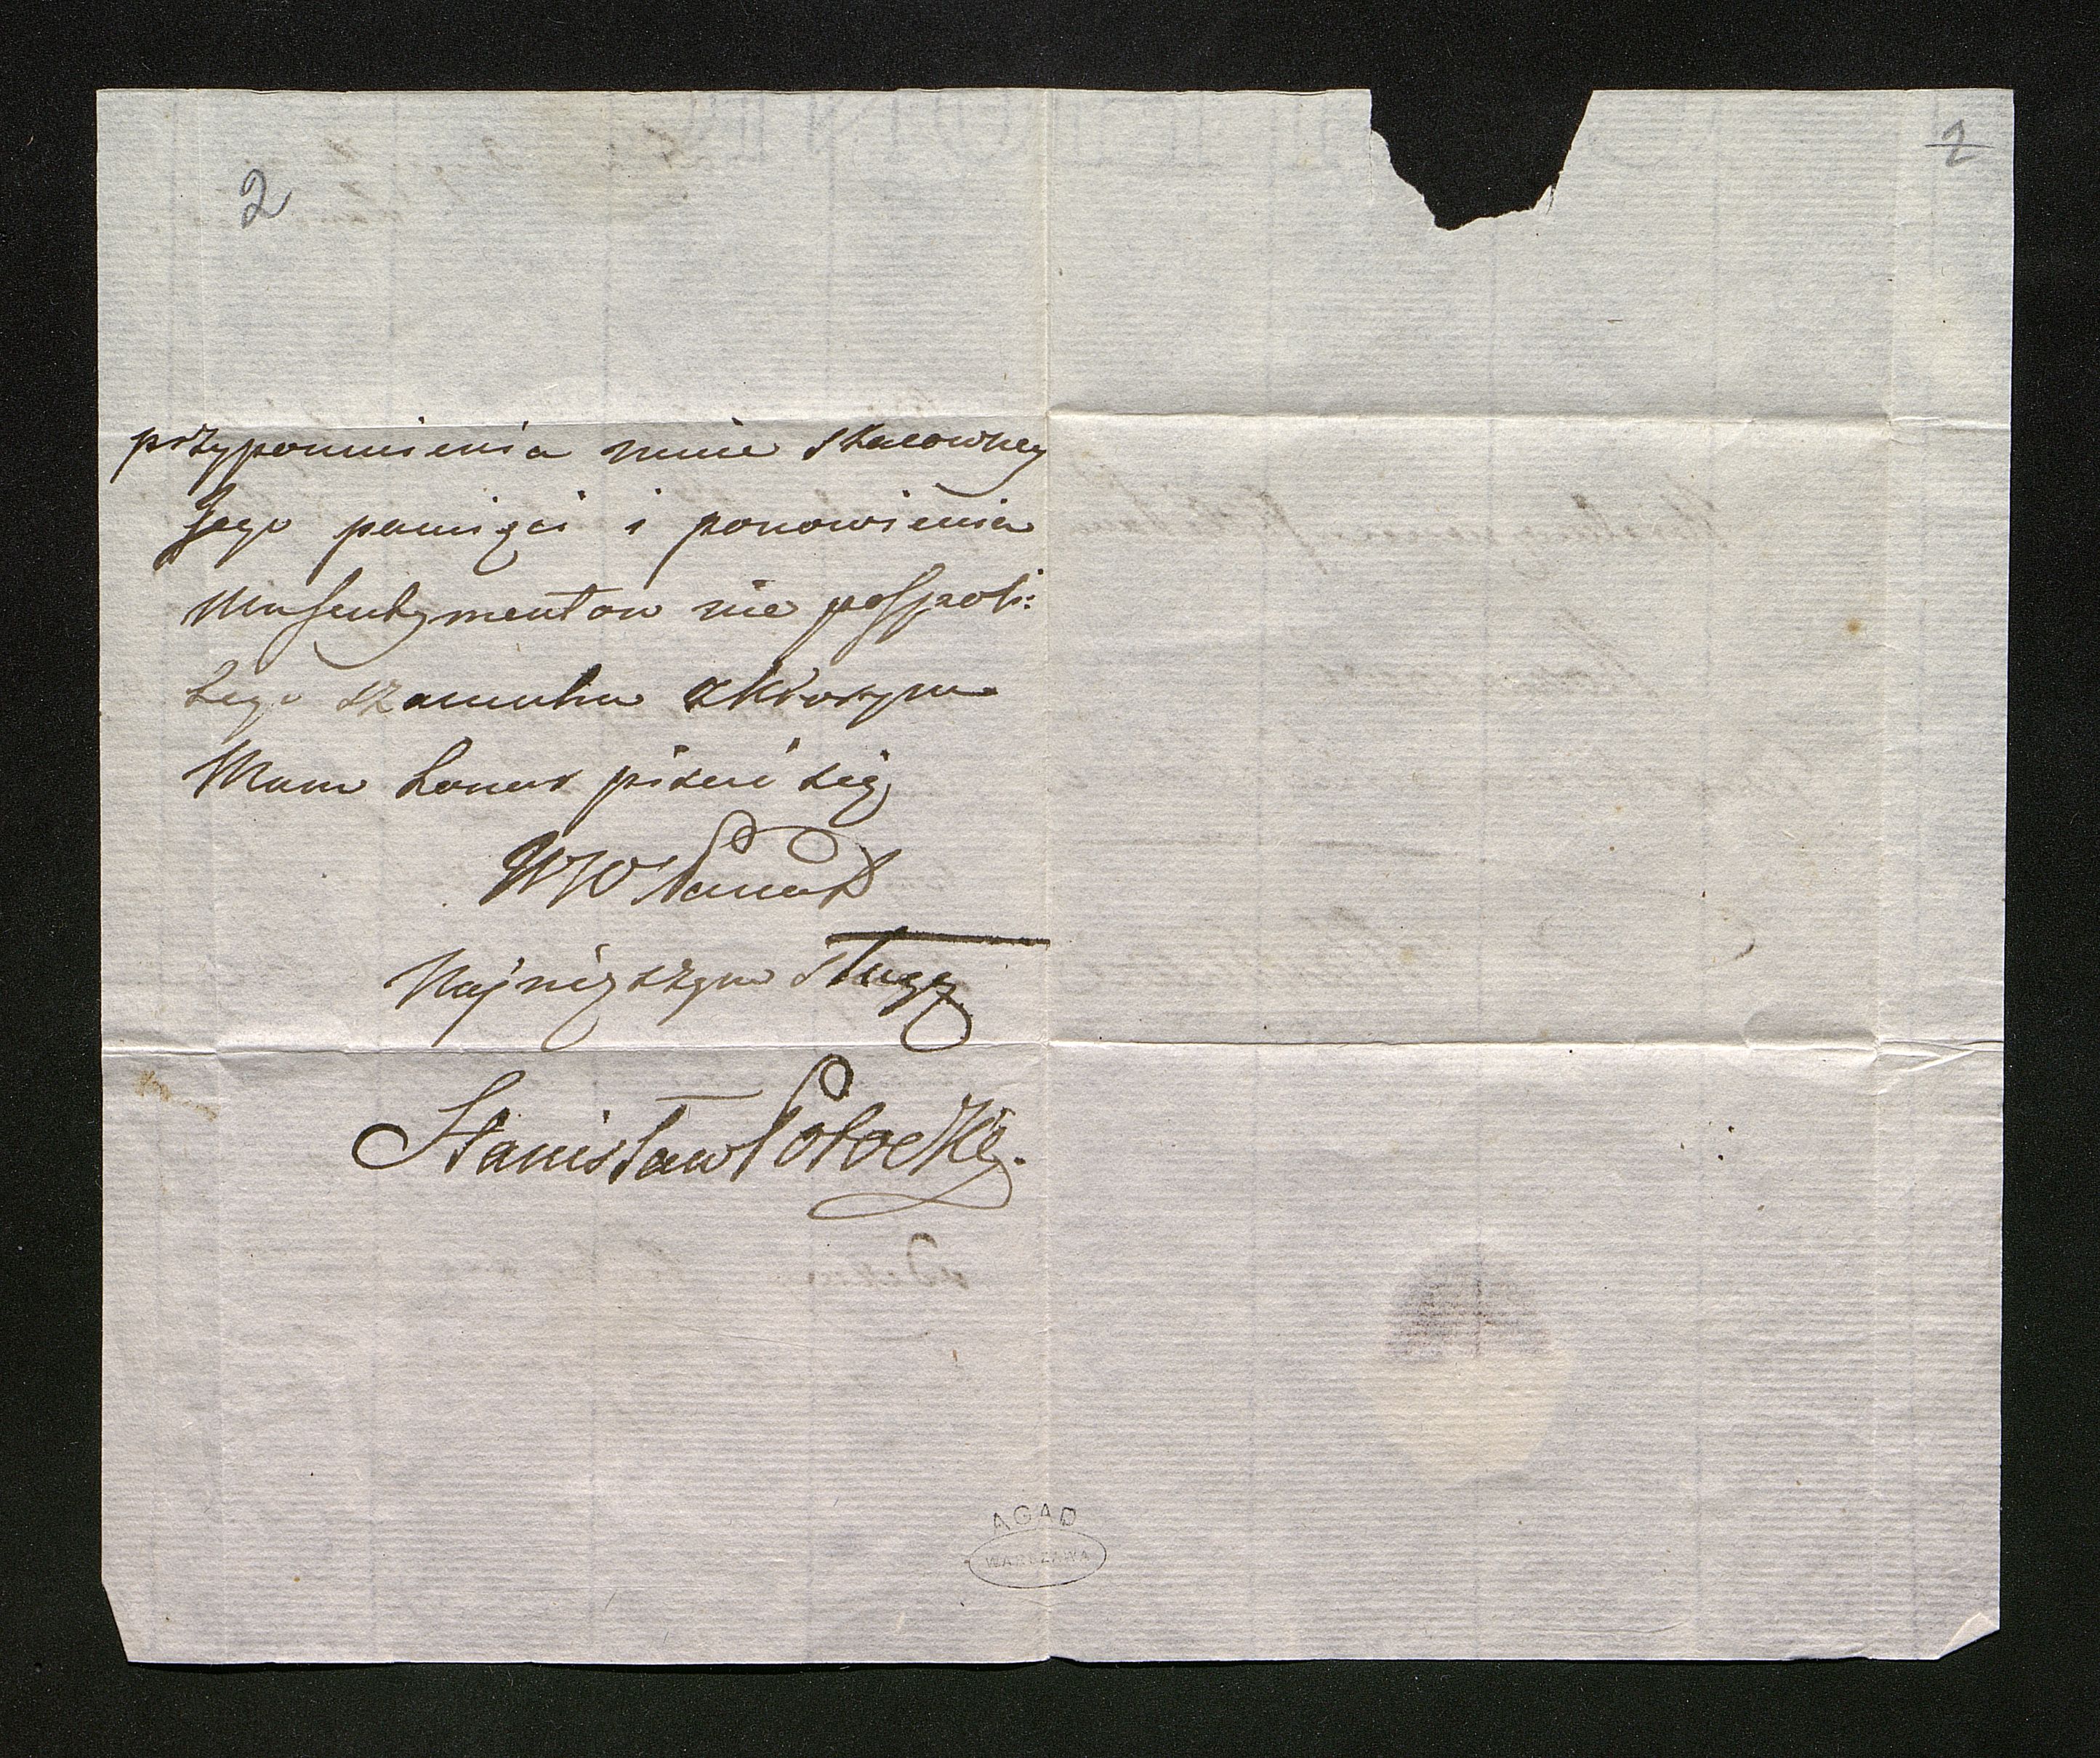 2
2
przypomnienia mnie szacowney
Jego pamięci i ponowienia
Mu sentymentow nie pospoli:
tego szacunku z ktorym
Mam honor pisać się
WW Pana D
Najniższym sługą
Stanisław Potocki.
AGAD
WARSZAWA